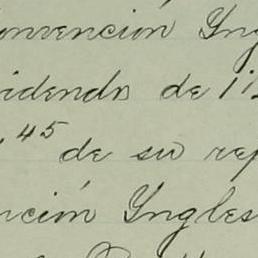 onvención Yng
idendo de 1
45 de su rep
nción Yngles